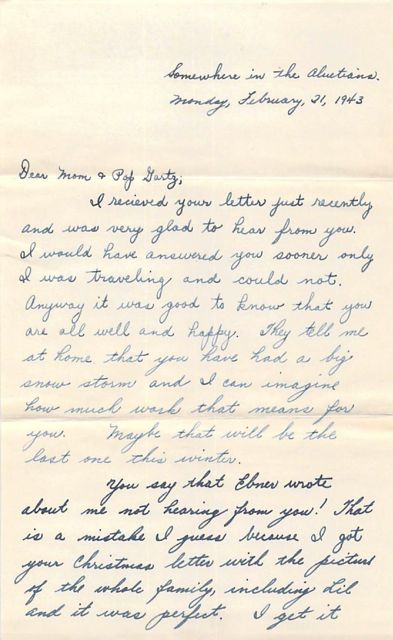 Somewhere in the Aluetians.
Monday, February, 21, 1943
Dear Mom & Pop Gartz,
I recieved your letter just recently
and was very glad to hear from you.
I would have answered you sooner only
I was traveling and could not.
Anyway it was good to know that you
are all well and happy. They tell me
at home that you have had a big
snow storm and I can imagine
how much work that means for
you. Maybe that will be the
last one this winter.
You say that Ebner wrote
about me not hearing from you! That
is a mistake I guess because I got
your Christmas letter with the picture
of the whole family, including Lil
and it was perfect. I get it